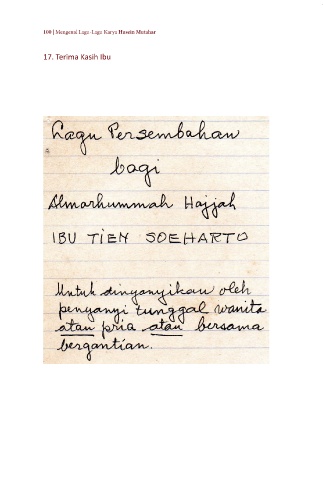 100 | Mengenal Lagu-Lagu Karya Husein Mutahar
17. Terima Kasih Ibu
Lagu Persembahan
bagi
Almarhummah Hajjah
IBU TIEN SOEHARTO
Untuk dinyanyikan oleh
penyanyi tunggal wanita
atau pria atau bersama
bergantian.